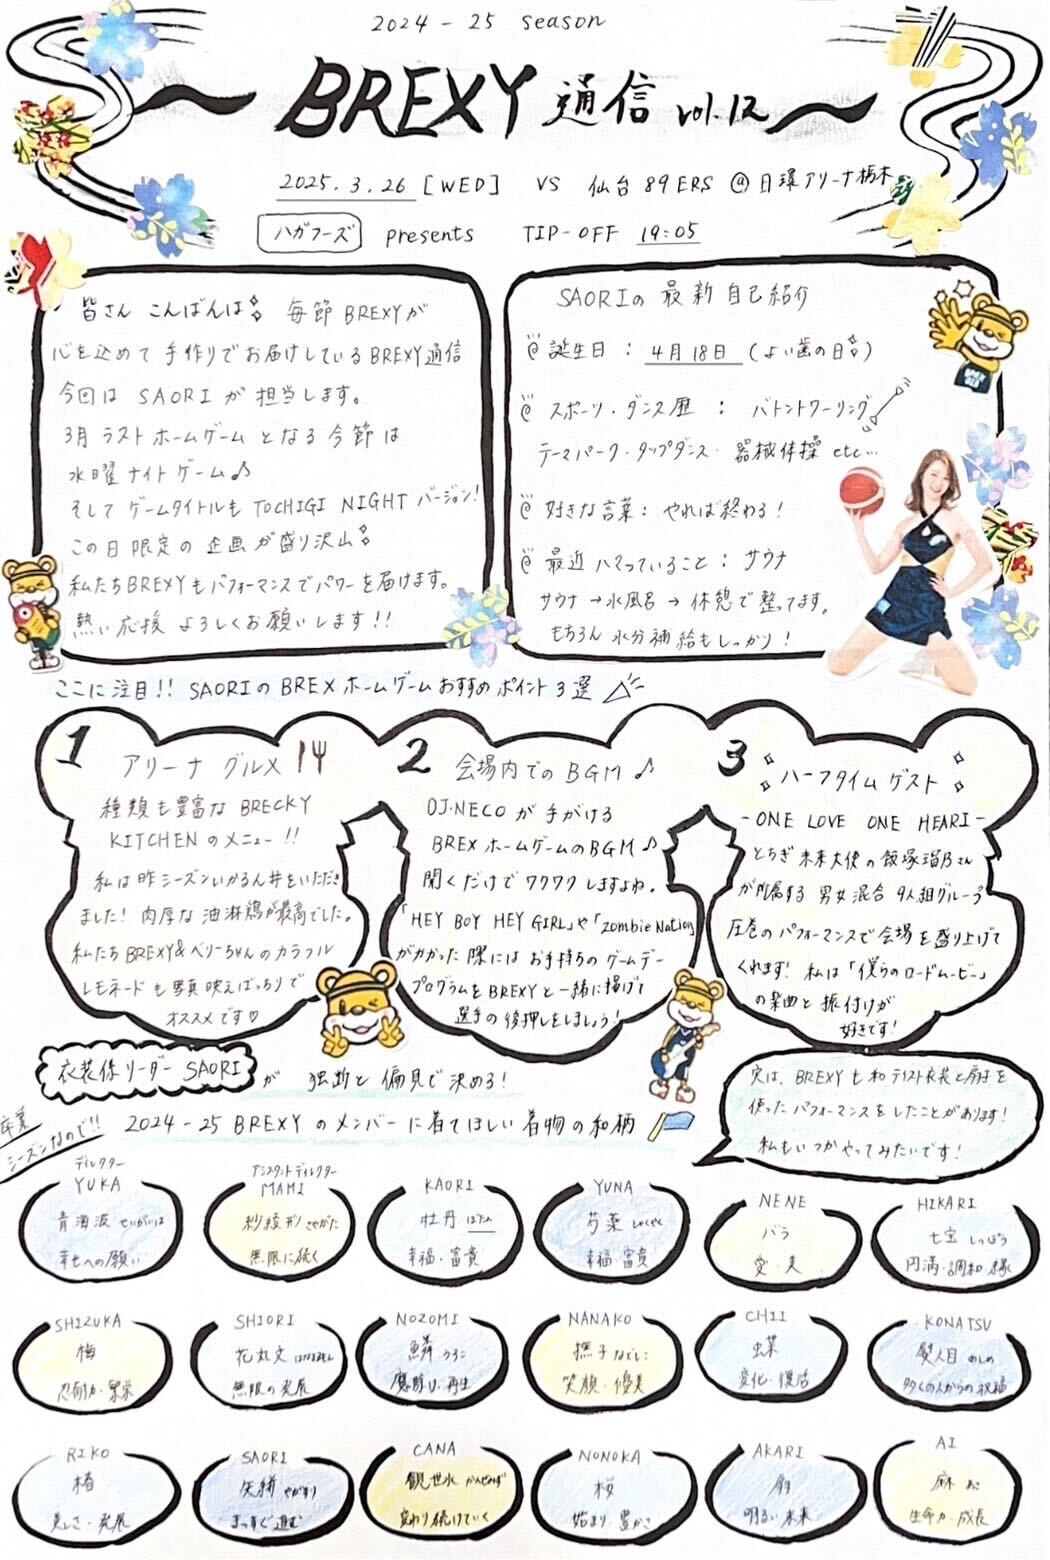 2024-25 season
〜BREXY 通信 vol.12〜
2025.3.26 [WED] VS 仙台89ERS @日環アリーナ栃木
ハガフーズ presents TIP-OFF 19:05
皆さん こんばんは 毎節BREXYが
心を込めて 手作りでお届けしているBREXY通信
今回は SAORI が 担当します。
3月 ラスト ホームゲーム となる 今節 は
水曜 ナイト ゲーム♪
そして ゲームタイトルも TOCHIGI NIGHT バージョン!
この日 限定 の 企画 が 盛り沢山
私たち BREXY も パフォーマンスで パワー を 届けます。
熱い 応援 よろしくお願いします!!
SAORIの 最新 自己紹介
誕生日 : 4月18日 (よい歯の日)
スポーツ・ダンス歴 : バトントワーリング
テーマパーク・タップダンス・器械体操 etc…
好きな言葉 : やれば終わる!
最近ハマっていること : サウナ
サウナ → 水風呂 → 休憩で整ってます。
もちろん 水分補給もしっかり!
ここに注目!! SAORIの BREX ホームゲーム おすすめ ポイント 3選
1 アリーナ グルメ
種類も豊富な BRECKY
KITCHEN のメニュー!!
私は昨シーズンいかるん丼をいただき
ました! 肉厚な 油淋鶏が最高でした。
私たち BREXY&ベリーちゃんのカラフル
レモネード も 写真映えばっちりで
オススメです♡
2 会場内での BGM♪
DJ・NECO が 手がける
BREX ホームゲームのBGM♪
聞くだけで ワクワク しますよね。
「HEY BOY HEY GIRL」や「Zombie Nation」
がかかった 際には お手持ちの ゲームデー
プログラムを BREXY と 一緒に掲げて
選手の後押しをしましょう!
3 ハーフタイム ゲスト
-ONE LOVE ONE HEART-
とちぎ 未来大使 の 飯塚瑠乃さん
が所属する 男女 混合 9人組グループ
圧巻の パフォーマンスで会場 を 盛り上げて
くれます! 私は「僕らのロードムービー」
の楽曲と 振付けが
好きです!
衣装係リーダー SAORI が 独断 と 偏見で決める!
卒業
シーズンなので!!
2024-25 BREXY の メンバー に 着てほしい 着物の和柄
実は、BREXYも 和テイスト衣装と扇子を
使った パフォーマンスをしたことがあります!
私もいつかやってみたいです!
ディレクター
YUKA
青海波 せいがいは
幸せへの願い
アシスタントディレクター
MAMI
紗綾形 さやがた
無限に続く
KAORI
牡丹 ぼたん
幸福・富貴
YUNA
芍薬 しゃくやく
幸福・富貴
NENE
バラ
愛・美
HIKARI
七宝 しっぽう
円満・調和・縁
SHIZUKA
梅
忍耐力・繁栄
SHIORI
花丸文 はなまるもん
無限の発展
NOZOMI
鱗 うろこ
魔除け・再生
NANAKO
撫子 なでしこ
笑顔・優美
CHII
蝶
変化・復活
KONATSU
熨斗目 のしめ
多くの人からの祝福
RIKO
椿
美しさ・発展
SAORI
矢絣 やがすり
まっすぐ進む
CANA
観世水 かんぜみず
変わり続けていく
NONOKA
桜
始まり・豊かさ
AKARI
扇
明るい未来
AI
麻 あさ
生命力・成長